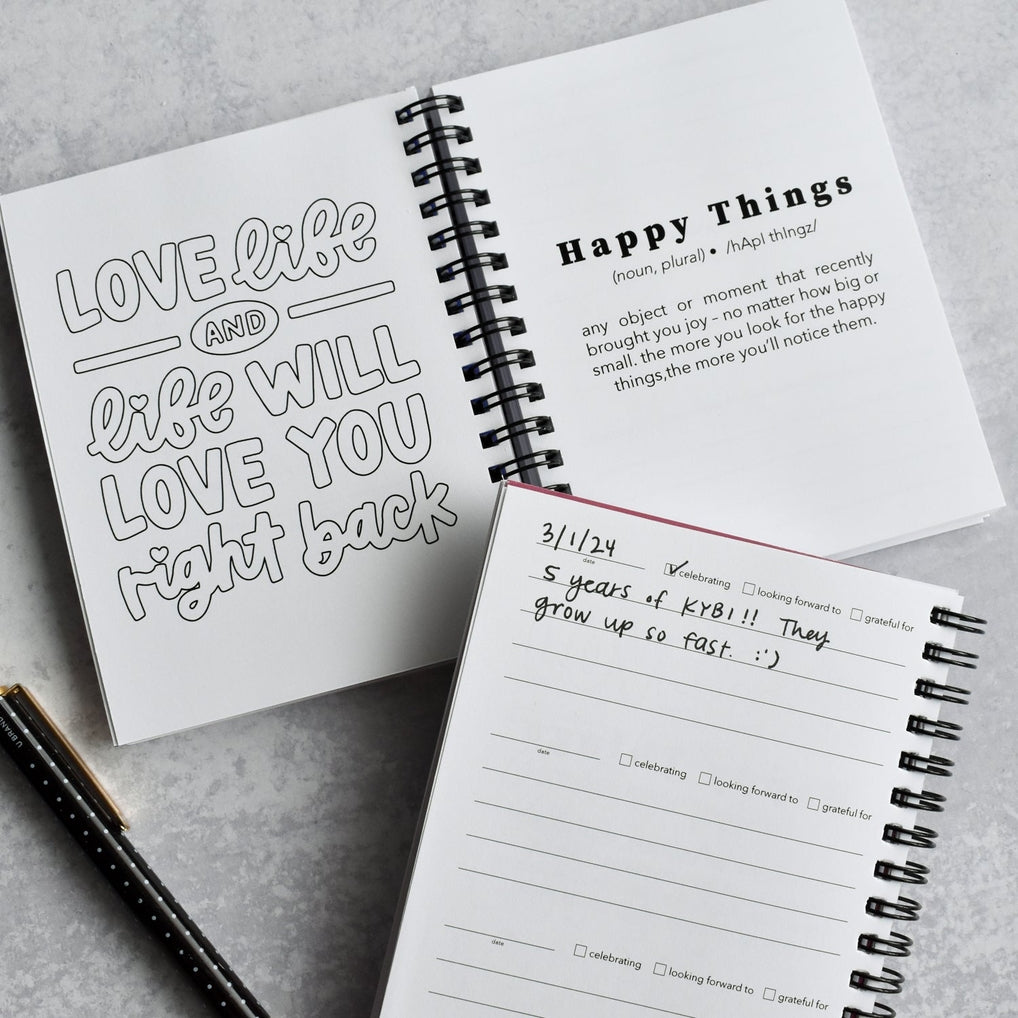 LOVE life
AND
life WILL
LOVE YOU
right back
Happy Things
(noun, plural) • /hApI thIngz/
any object or moment that recently
brought you joy – no matter how big or
small. the more you look for the happy
things,the more you'll notice them.
3/1/24
date
celebrating looking forward to grateful for
5 years of KYB1!! They
grow up so fast. :')
date
celebrating looking forward to grateful for
date
celebrating looking forward to grateful for
U BRAND